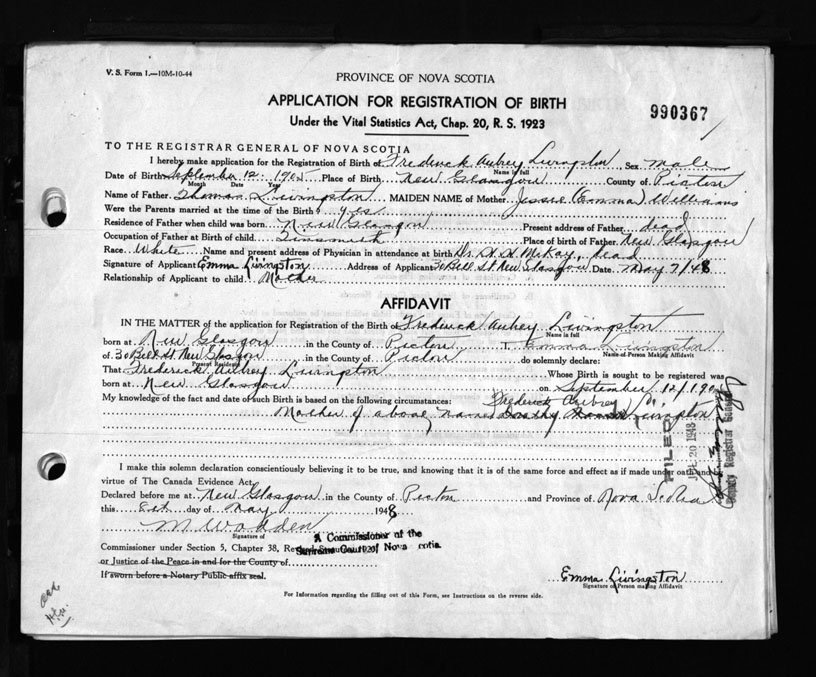 V. S. Form 1.—10M-10-44
PROVINCE OF NOVA SCOTIA
APPLICATION FOR REGISTRATION OF BIRTH
990367
Under the Vital Statistics Act, Chap. 20, R. S. 1923
TO THE REGISTRAR GENERAL OF NOVA SCOTIA
I hereby make application for the Registration of Birth of Frederick Aubrey Livingston Sex male
Name in full
Date of Birth September 12 Place of Birth New Glasgow County of Pictou
Month Date Year
Name of Father Thomas Livingston MAIDEN NAME of Mother Jessie (Emma) Williams
Were the Parents married at the time of the Birth? yes
Residence of Father when child was born New Glasgow Present address of Father dead
Occupation of Father at Birth of child Tinsmith Place of birth of Father New Glasgow
Race White Name and present address of Physician in attendance at birth Dr. McKay, dead
Signature of Applicant Emma Livingston Address of Applicant 30 Bell St New Glasgow Date May 7/48
Relationship of Applicant to child Mother
AFFIDAVIT
IN THE MATTER of the application for Registration of the Birth of Frederick Aubrey Livingston
Name in full
born at New Glasgow in the County of Pictou I, Emma Livingston
Name of Person Making Affidavit
of 30 Bell St New Glasgow in the County of Pictou do solemnly declare:
Present Residence
That Frederick Aubrey Livingston Whose Birth is sought to be registered was
born at New Glasgow on September 12
My knowledge of the fact and date of such Birth is based on the following circumstances: Frederick Aubrey
Mother of above named Livingston
FILED
JUL 20 1948
Deputy Registrar General
I make this solemn declaration conscientiously believing it to be true, and knowing that it is of the same force and effect as if made under oath and
virtue of The Canada Evidence Act.
Declared before me at New Glasgow in the County of Pictou and Province of Nova Scotia
this 8th day of May 1948
M Wadden
Signature of
A Commissioner of the
Supreme Court of Nova cotia.
Commissioner under Section 5, Chapter 38,
or Justice of the Peace in and for the County of
If sworn before a Notary Public affix seal.
Emma Livingston
Signature of Person making Affidavit
For Information regarding the filling out of this Form, see Instructions on the reverse side.